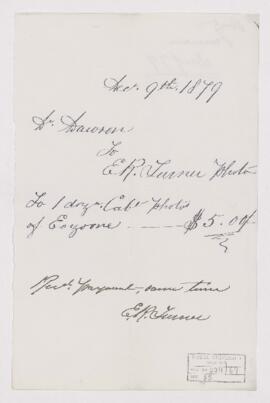 Dec. 9th. 1879
Dr. Dawson
To
E.R. Turner Photo
To 1 dozn. Cabt. Photos
of Eozoone — $5.00
Recd. payment, same time
E.R. Turner